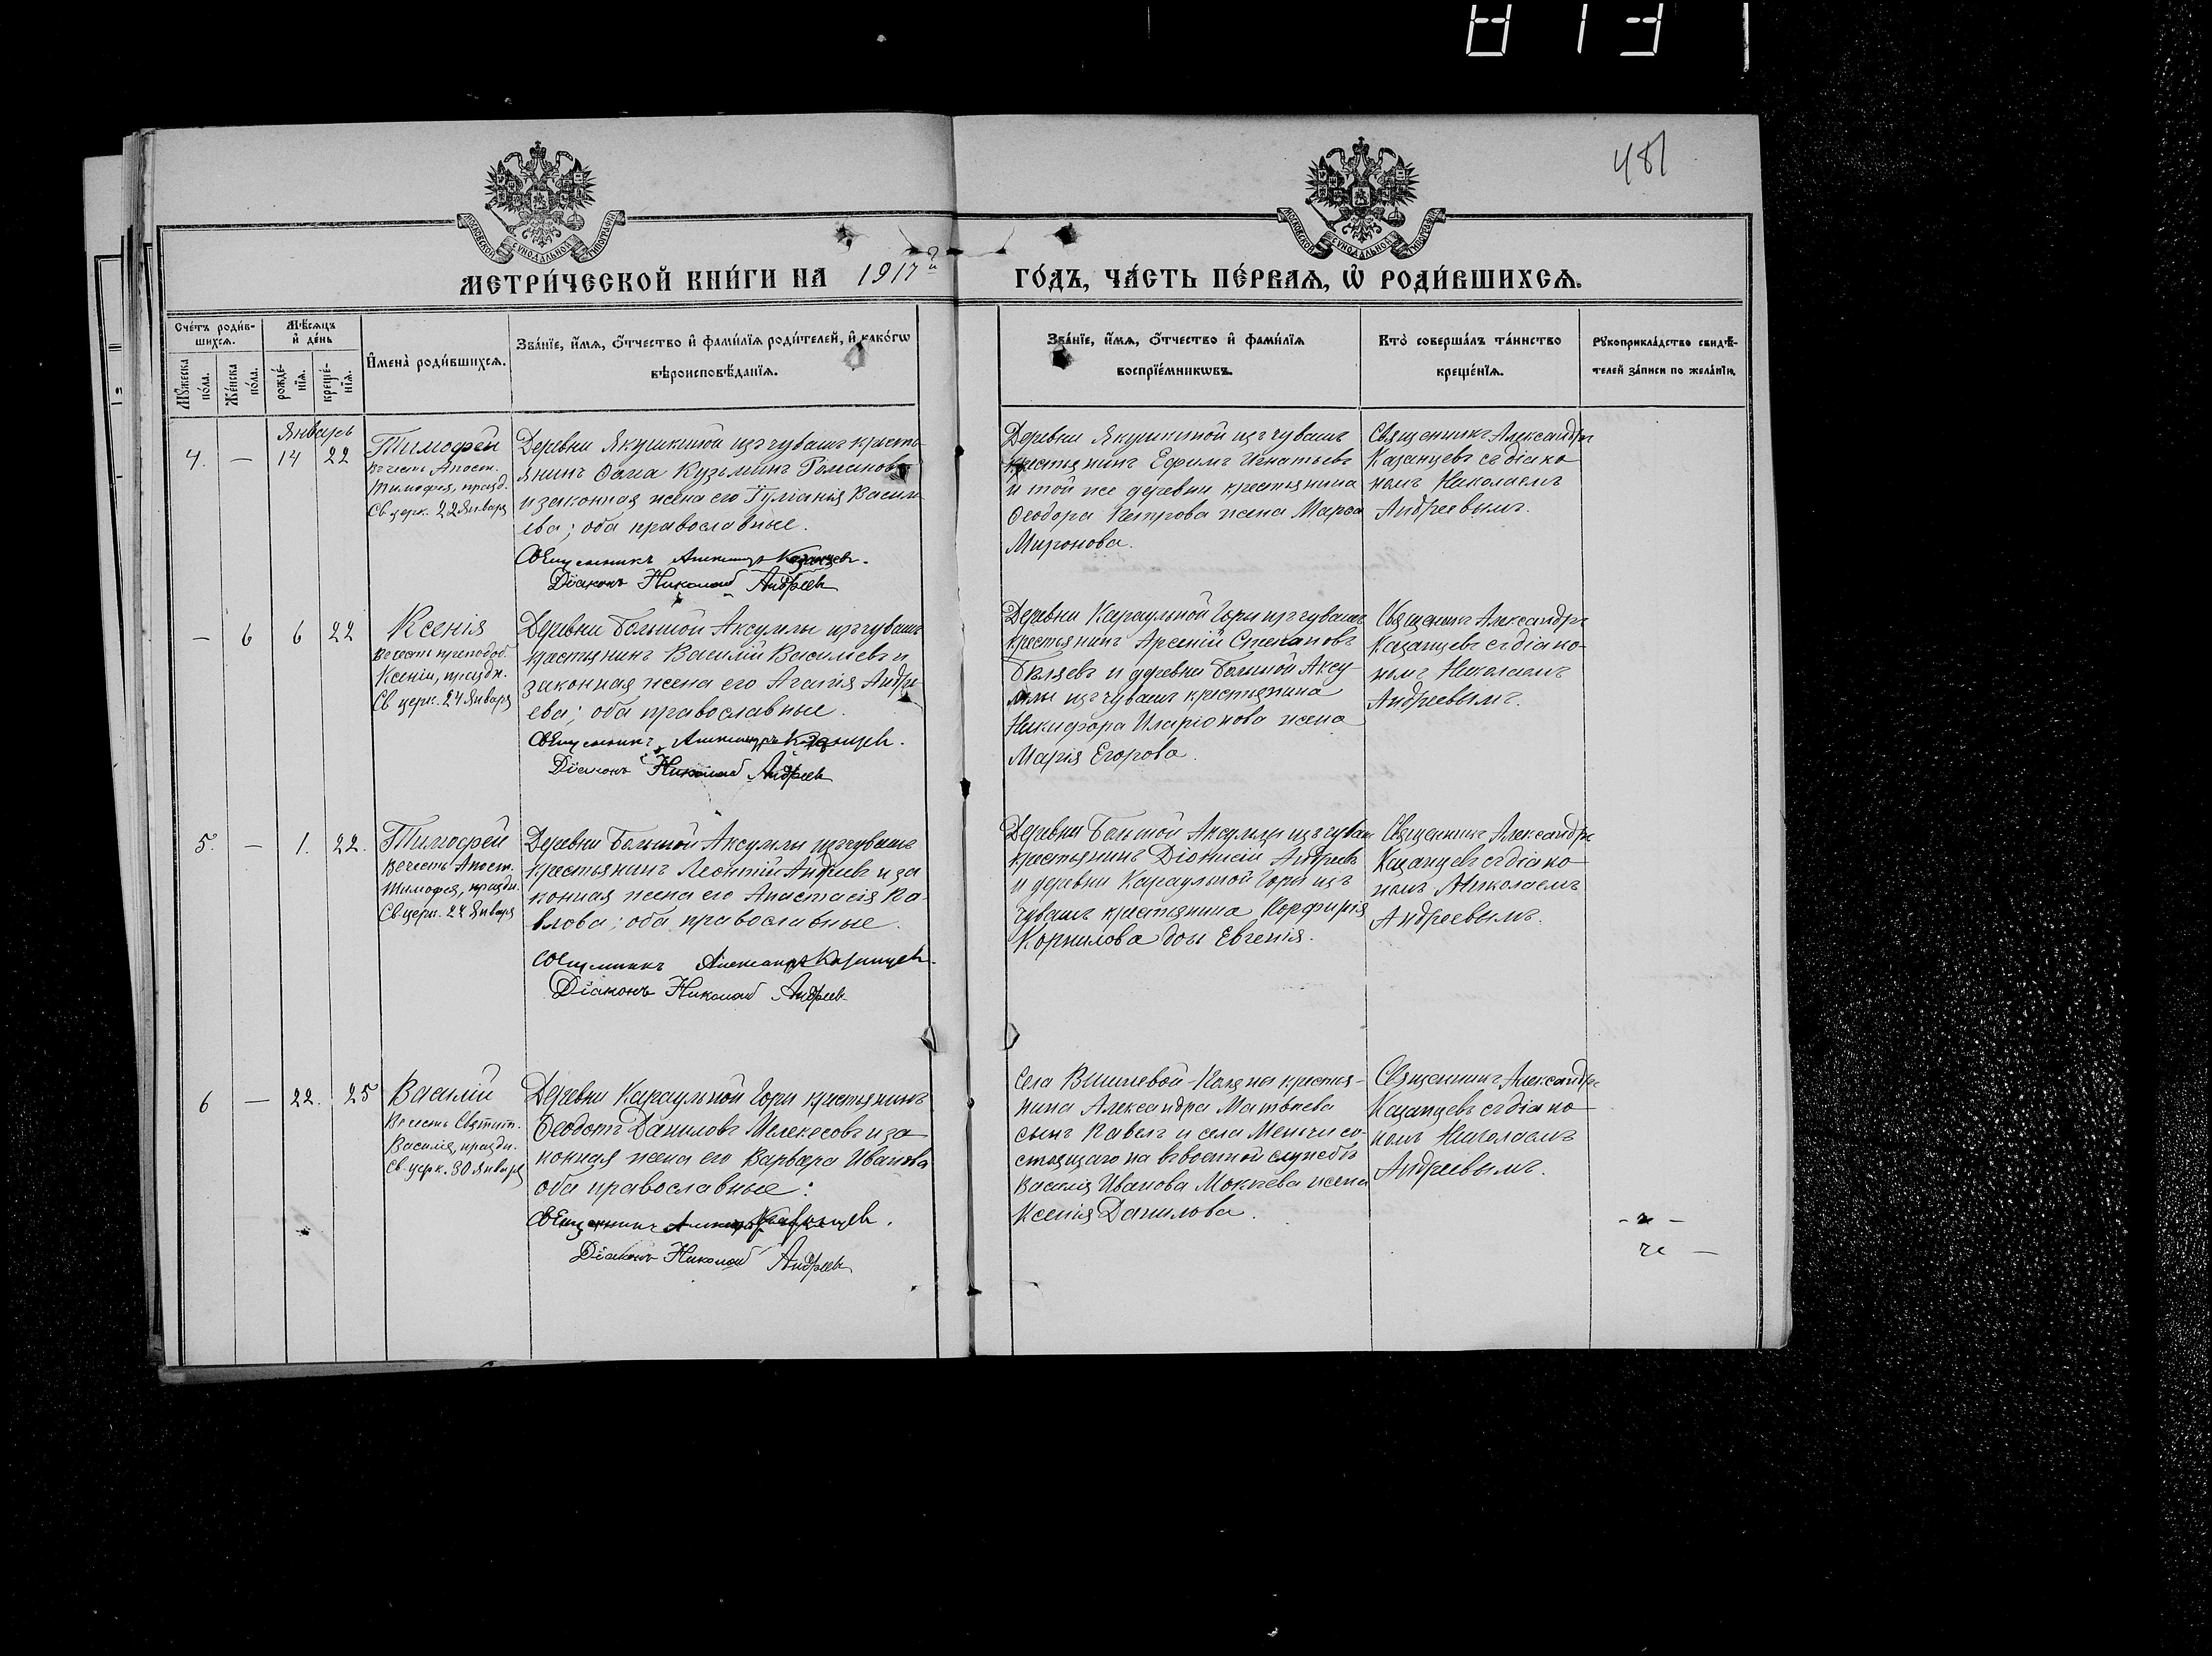 481
МОСКОВСКОЙ СѴНОДАЛЬНОЙ ТИПОГРАФІИ
МОСКОВСКОЙ СѴНОДАЛЬНОЙ ТИПОГРАФІИ
МЕТРИ́ЧЕСКОЙ КНИ́ГИ НА 1917й ГО́ДЪ, ЧА́СТЬ ПЕ́РВАѦ, Ѡ҆ РОДИ́ВШИХСѦ.
Сче́тъ роди́в-
шихсѧ.
Мꙋжеска по́ла.
Же́нска по́ла.
Мѣ́сѧцъ
и҆ де́нь
рожде́-
нїѧ.
креще́-
нїѧ.
И҆мена̀ роди́вшихсѧ.
Зва́нїе, и҆́мѧ, о҆́тчество и҆ фами́лїѧ роди́телей, и҆ како́гѡ
вѣроисповѣ́данїѧ.
Зва́нїе, и҆́мѧ, о҆́тчество и҆ фами́лїѧ
воспрїе́мникѡвъ.
Кто̀ соверша́лъ та́инство
креще́нїѧ.
Рꙋкоприкла́дство свидѣ́-
телей за́писи по жела́нїю.
Январь
4. — 14 22
Тимофей
въ честь Апост.
Тимофея, празд.
Св. церк. 22 Января
Деревни Якушкиной изъ чувашъ кресть-
янинъ Ѳома Кузьминъ Романовъ
и законная жена его Іуліанія Василь
ева; оба православные.
Священникъ Александръ Казанцевъ.
Діаконъ Николай Андреевъ
Деревни Якушкиной изъ чувашъ
крестьянинъ Ефимъ Игнатьевъ
и той же деревни крестьянина
Ѳеодора Петрова жена Марѳа
Миронова.
Священникъ Александръ
Казанцевъ съ діако
номъ Николаемъ
Андреевымъ.
— 6 6 22
Ксенія
въ честь преподоб.
Ксеніи, праздн.
Св. церк. 24 Января
Деревни Большой Аксумлы изъ чувашъ
крестьянинъ Василій Васильевъ и
законная жена его Агапія Андре
ева; оба православные.
Священникъ Александръ Казанцевъ.
Діаконъ Николай Андреевъ
Деревни Караульной Горы изъ чувашъ
крестьянинъ Арсеній Степановъ
Бѣляевъ и деревни Большой Аксу-
млы изъ чувашъ крестьянина
Никифора Иларіонова жена
Марія Егорова.
Священникъ Александръ
Казанцевъ съ діако-
номъ Николаемъ
Андреевымъ.
5. — 1. 22.
Тимофей
въ честь Апост.
Тимофея, праздн.
Св. церк. 22 Января
Деревни Большой Аксумлы изъ чувашъ
крестьянинъ Леонтій Андреевъ и за
конная жена его Анастасія Па-
влова; оба православные.
Священникъ Александръ Казанцевъ.
Діаконъ Николай Андреевъ
Деревни Большой Аксумлы изъ чуваш
крестьянинъ Діонисій Андреевъ
и деревни Караульной Горы изъ
чувашъ крестьянина Порфирія
Корнилова дочь Евгенія.
Священникъ Александръ
Казанцевъ съ діако
номъ Николаемъ
Андреевымъ.
6 — 22. 25
Василій
въ честь Святит.
Василія, праздн.
Св. церк. 30 Января
Деревни Караульной Горы крестьянинъ
Ѳеодотъ Даниловъ Мелекесовъ и за
конная жена его Варвара Иванова
оба православные.
Священникъ Александръ Казанцевъ.
Діаконъ Николай Андреевъ
Села Вишневой-Поляны крестья-
нина Александра Матвѣева
сынъ Павелъ и села со-
стоящаго на военной службѣ
Василія Иванова Мокѣева жена
Ксенія Данилова.
Священникъ Александръ
Казанцевъ съ діако
номъ Николаемъ
Андреевымъ.